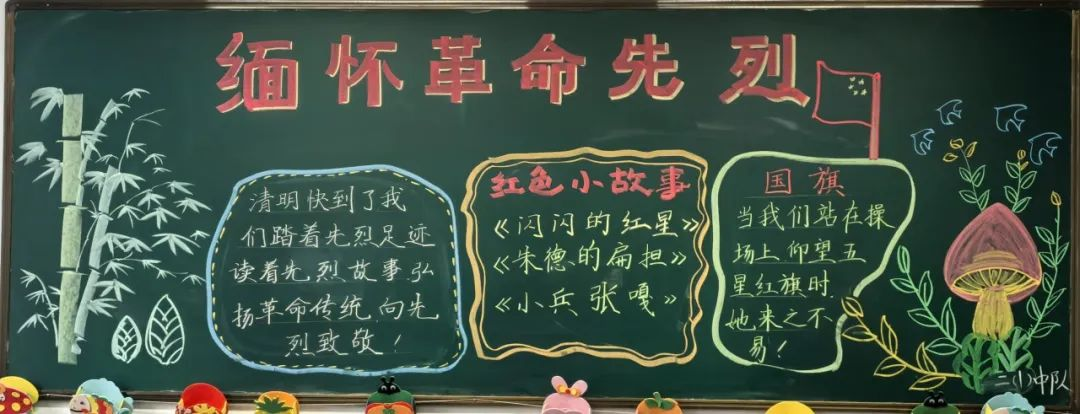 缅怀革命先烈
清明快到了我
们踏着先烈足迹
读着先烈故事弘
扬革命传统,向先
烈致敬!
红色小故事
《闪闪的红星》
《朱德的扁担》
《小兵张嘎》
国旗
当我们站在操
场上仰望五
星红旗时,
她来之不
易!
二(1)中队